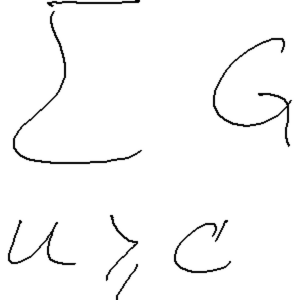 ∑ G
u ⩾ c